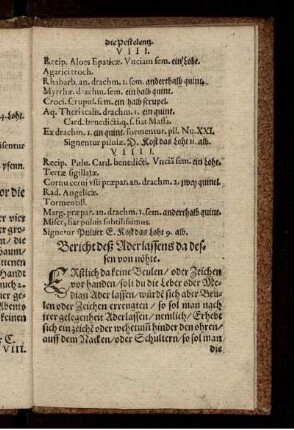 die Pestelentz.
VIII.
Recip. Aloes Epaticæ. Vnciam sem. ein Loht.
Agarici troch.
Rhabarb. an. drachm. 1. sem. anderthalb quint.
Myrrhæ. drachm. sem. ein halb quint.
Croci. scrupul. sem. ein halb scrupel.
Aq. Theriacalis. drachm. 1. ein quint.
Card. benedicti. q. s. fiat Massa.
Ex drachm. 1. ein quint. formentur. pil. Nu. XXI.
Signentur pilulæ. D. Kost das Loht 11. alb.
VIIII.
Recip. Pulu. Card. benedicti. Vnciā sem ein Loht.
Terræ sigillatæ.
Cornu cerni vsti præpar. an. drachm. 2. zwey quintel.
Rad. Angelicæ.
Tormentill.
Marg. præpar. an. drachm. 1. sem. anderthalb quint.
Misce, fiat puluis subtilissimus.
Signetur Puluer E. Kost das Loht 9. alb.
Bericht deß Aderlassens da des-
sen von nöhte.
Erstlich da keine Beulen / oder Zeichen
vorhanden / soll du die Leber oder Me-
dian Ader lassen / würdē sich aber Beu-
len oder Zeichen erreugten / so sol man nach
jrer gelegenheit Aderlassen / nemlich / Erhebe
sich ein zeichē oder wehetumb hinder den ohren /
auff dem Nacken / oder Schultern / so sol man
die
4. Loht.
pfenn.
or die
vier
gro
den /
enen
Handt
auch
Abents
keinen
C.
VIII.